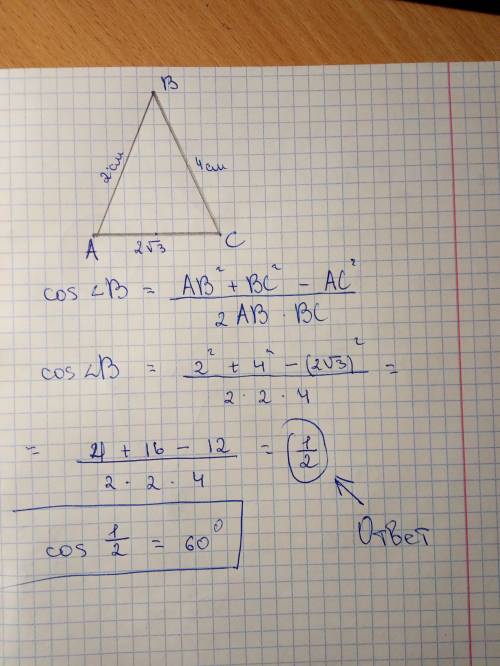 B
2 см
4 см
A
2√3
C
cos ∠B = (AB² + BC² − AC²) / (2 AB · BC)
cos ∠B = (2² + 4² − (2√3)²) / (2 · 2 · 4) =
= (4 + 16 − 12) / (2 · 2 · 4) = 1/2
Ответ
cos 1/2 = 60⁰